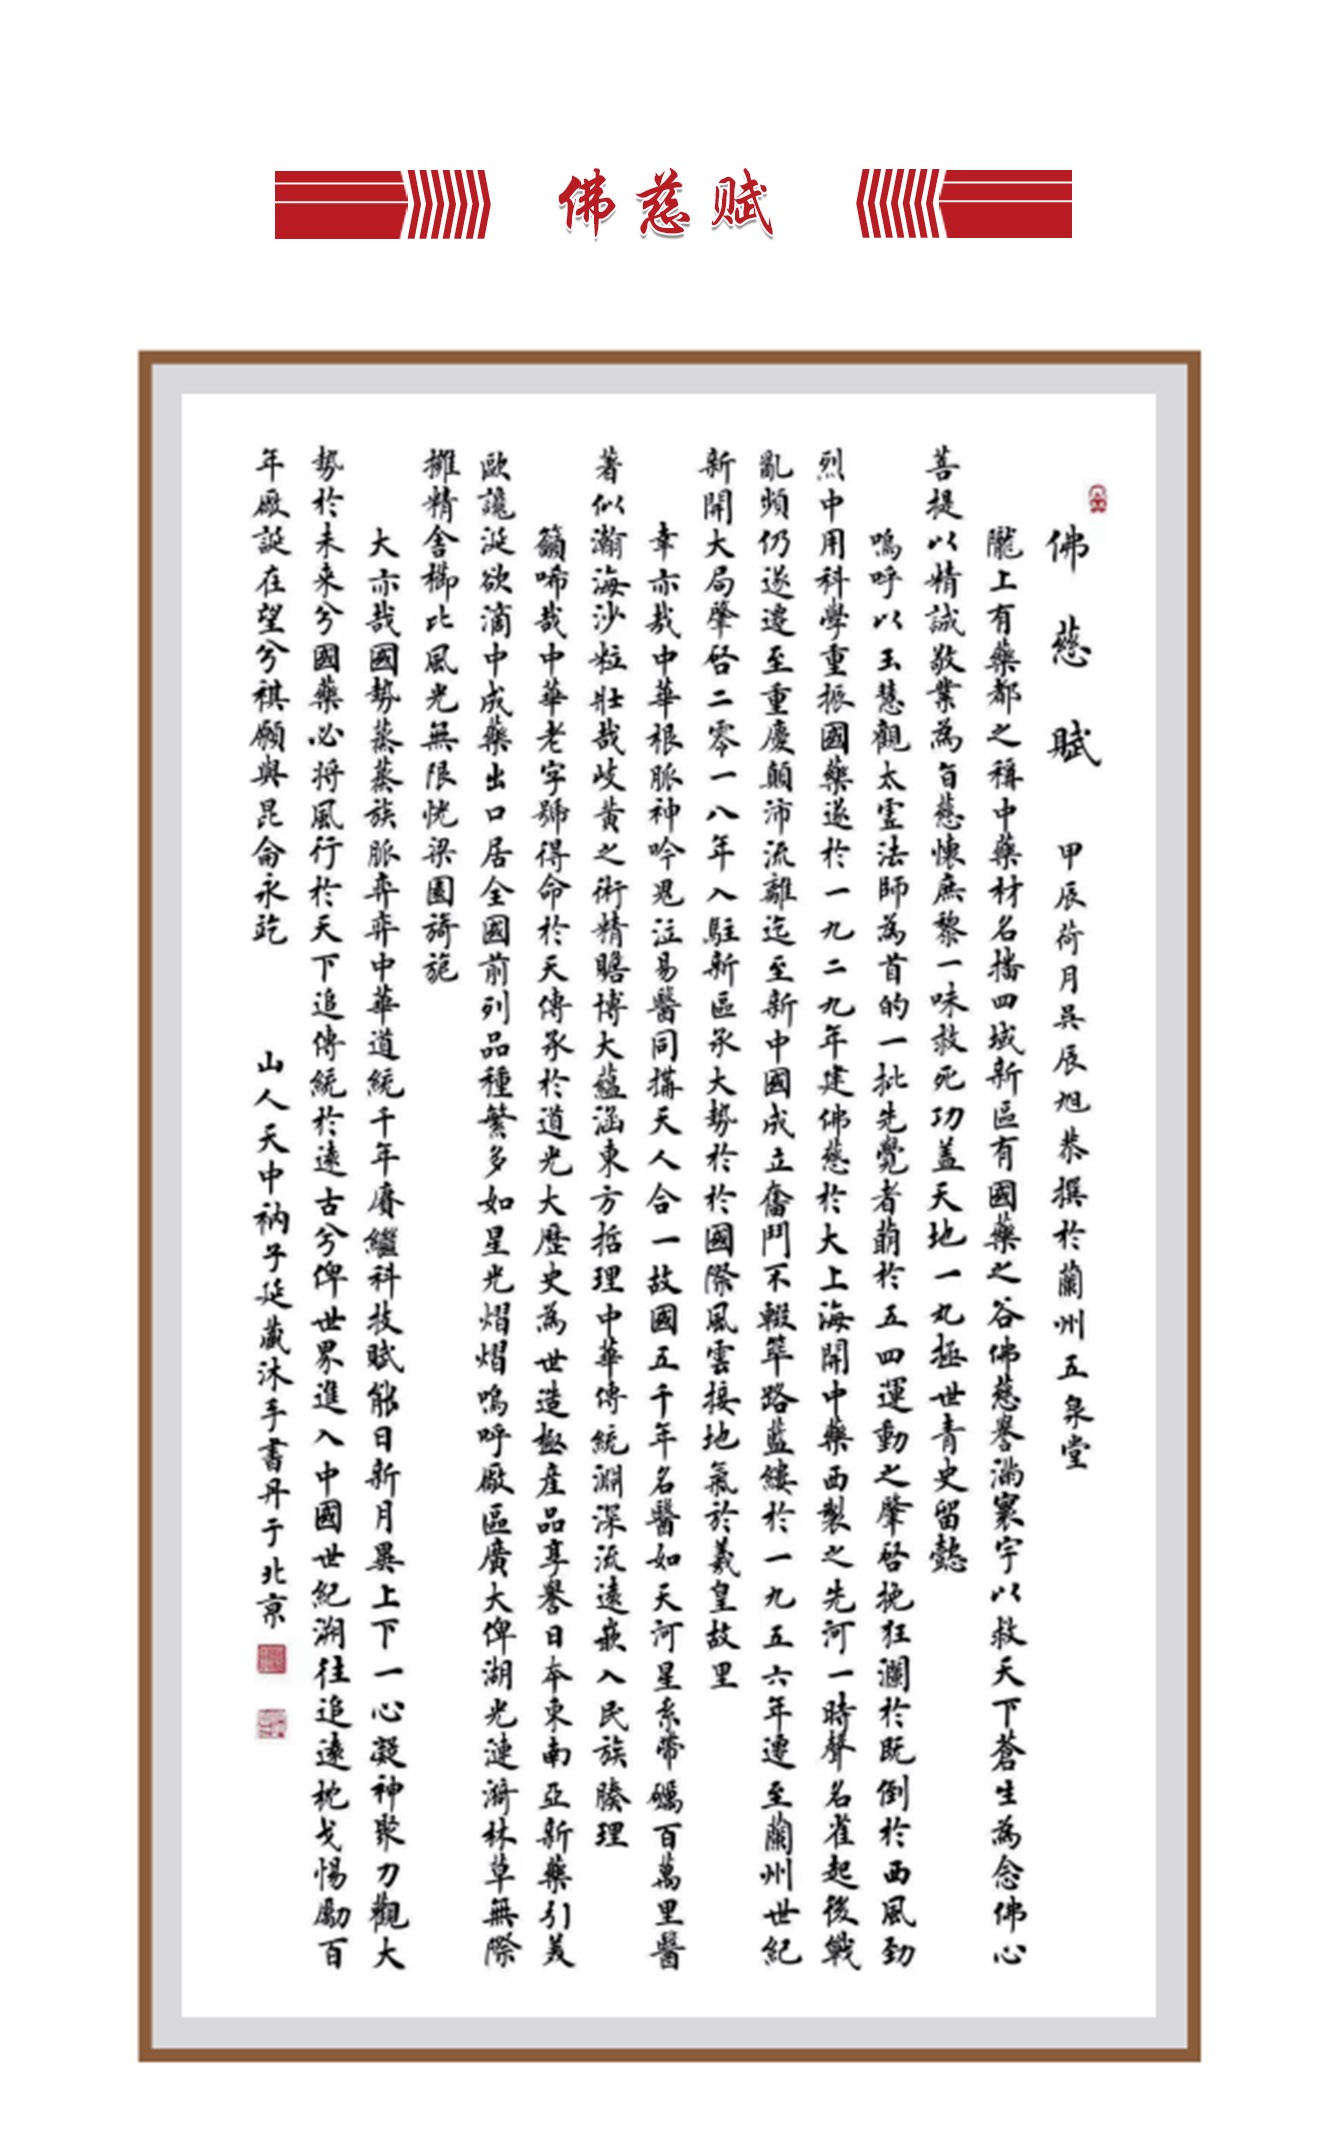 佛慈赋
佛慈賦 甲辰荷月吳辰旭恭撰於蘭州五泉堂
隴上有藥都之稱中藥材名播四域新區有國藥之谷佛慈譽滿寰宇以救天下蒼生為念佛心
菩提以精誠敬業為旨慈懷庶黎一味救死功蓋天地一丸拯世青史留懿
嗚呼以玉慧觀太霊法師為首的一批先覺者萠於五四運動之肇啓挽狂瀾於既倒於西風勁
烈中用科學重振國藥遂於一九二九年建佛慈於大上海開中藥西製之先河一時聲名雀起後戰
亂頻仍遂遷至重慶顛沛流離迄至新中國成立奮鬥不輟筚路藍縷於一九五六年遷至蘭州世紀
新開大局肇啓二零一八年入駐新區承大勢於於國際風雲接地氣於羲皇故里
幸亦哉中華根脈神吟鬼泣易醫同搆天人合一故國五千年名醫如天河星系帶礪百萬里醫
著似瀚海沙粒壯哉岐黄之術精贍博大蘊涵東方哲理中華傳統淵深流遠嵌入民族腠理
籲唏哉中華老字號得命於天傳承於道光大歷史為世造極産品享譽日本東南亞新藥引美
歐讒涎欲滴中成藥出口居全國前列品種繁多如星光熠熠嗚呼厰區廣大俾湖光漣漪林草無際
擁精舍櫛比風光無限恍梁園旖旎
大亦哉國勢蒸蒸族脈弈弈中華道統千年賡繼科技賦能日新月異上下一心凝神聚力觀大
勢於未来兮國藥必将風行於天下追傳統於遠古兮俾世界進入中國世紀溯往追遠枕戈惕勵百
年厰誕在望兮祺願與昆侖永訖 山人天中衲子延藏沐手書丹于北京